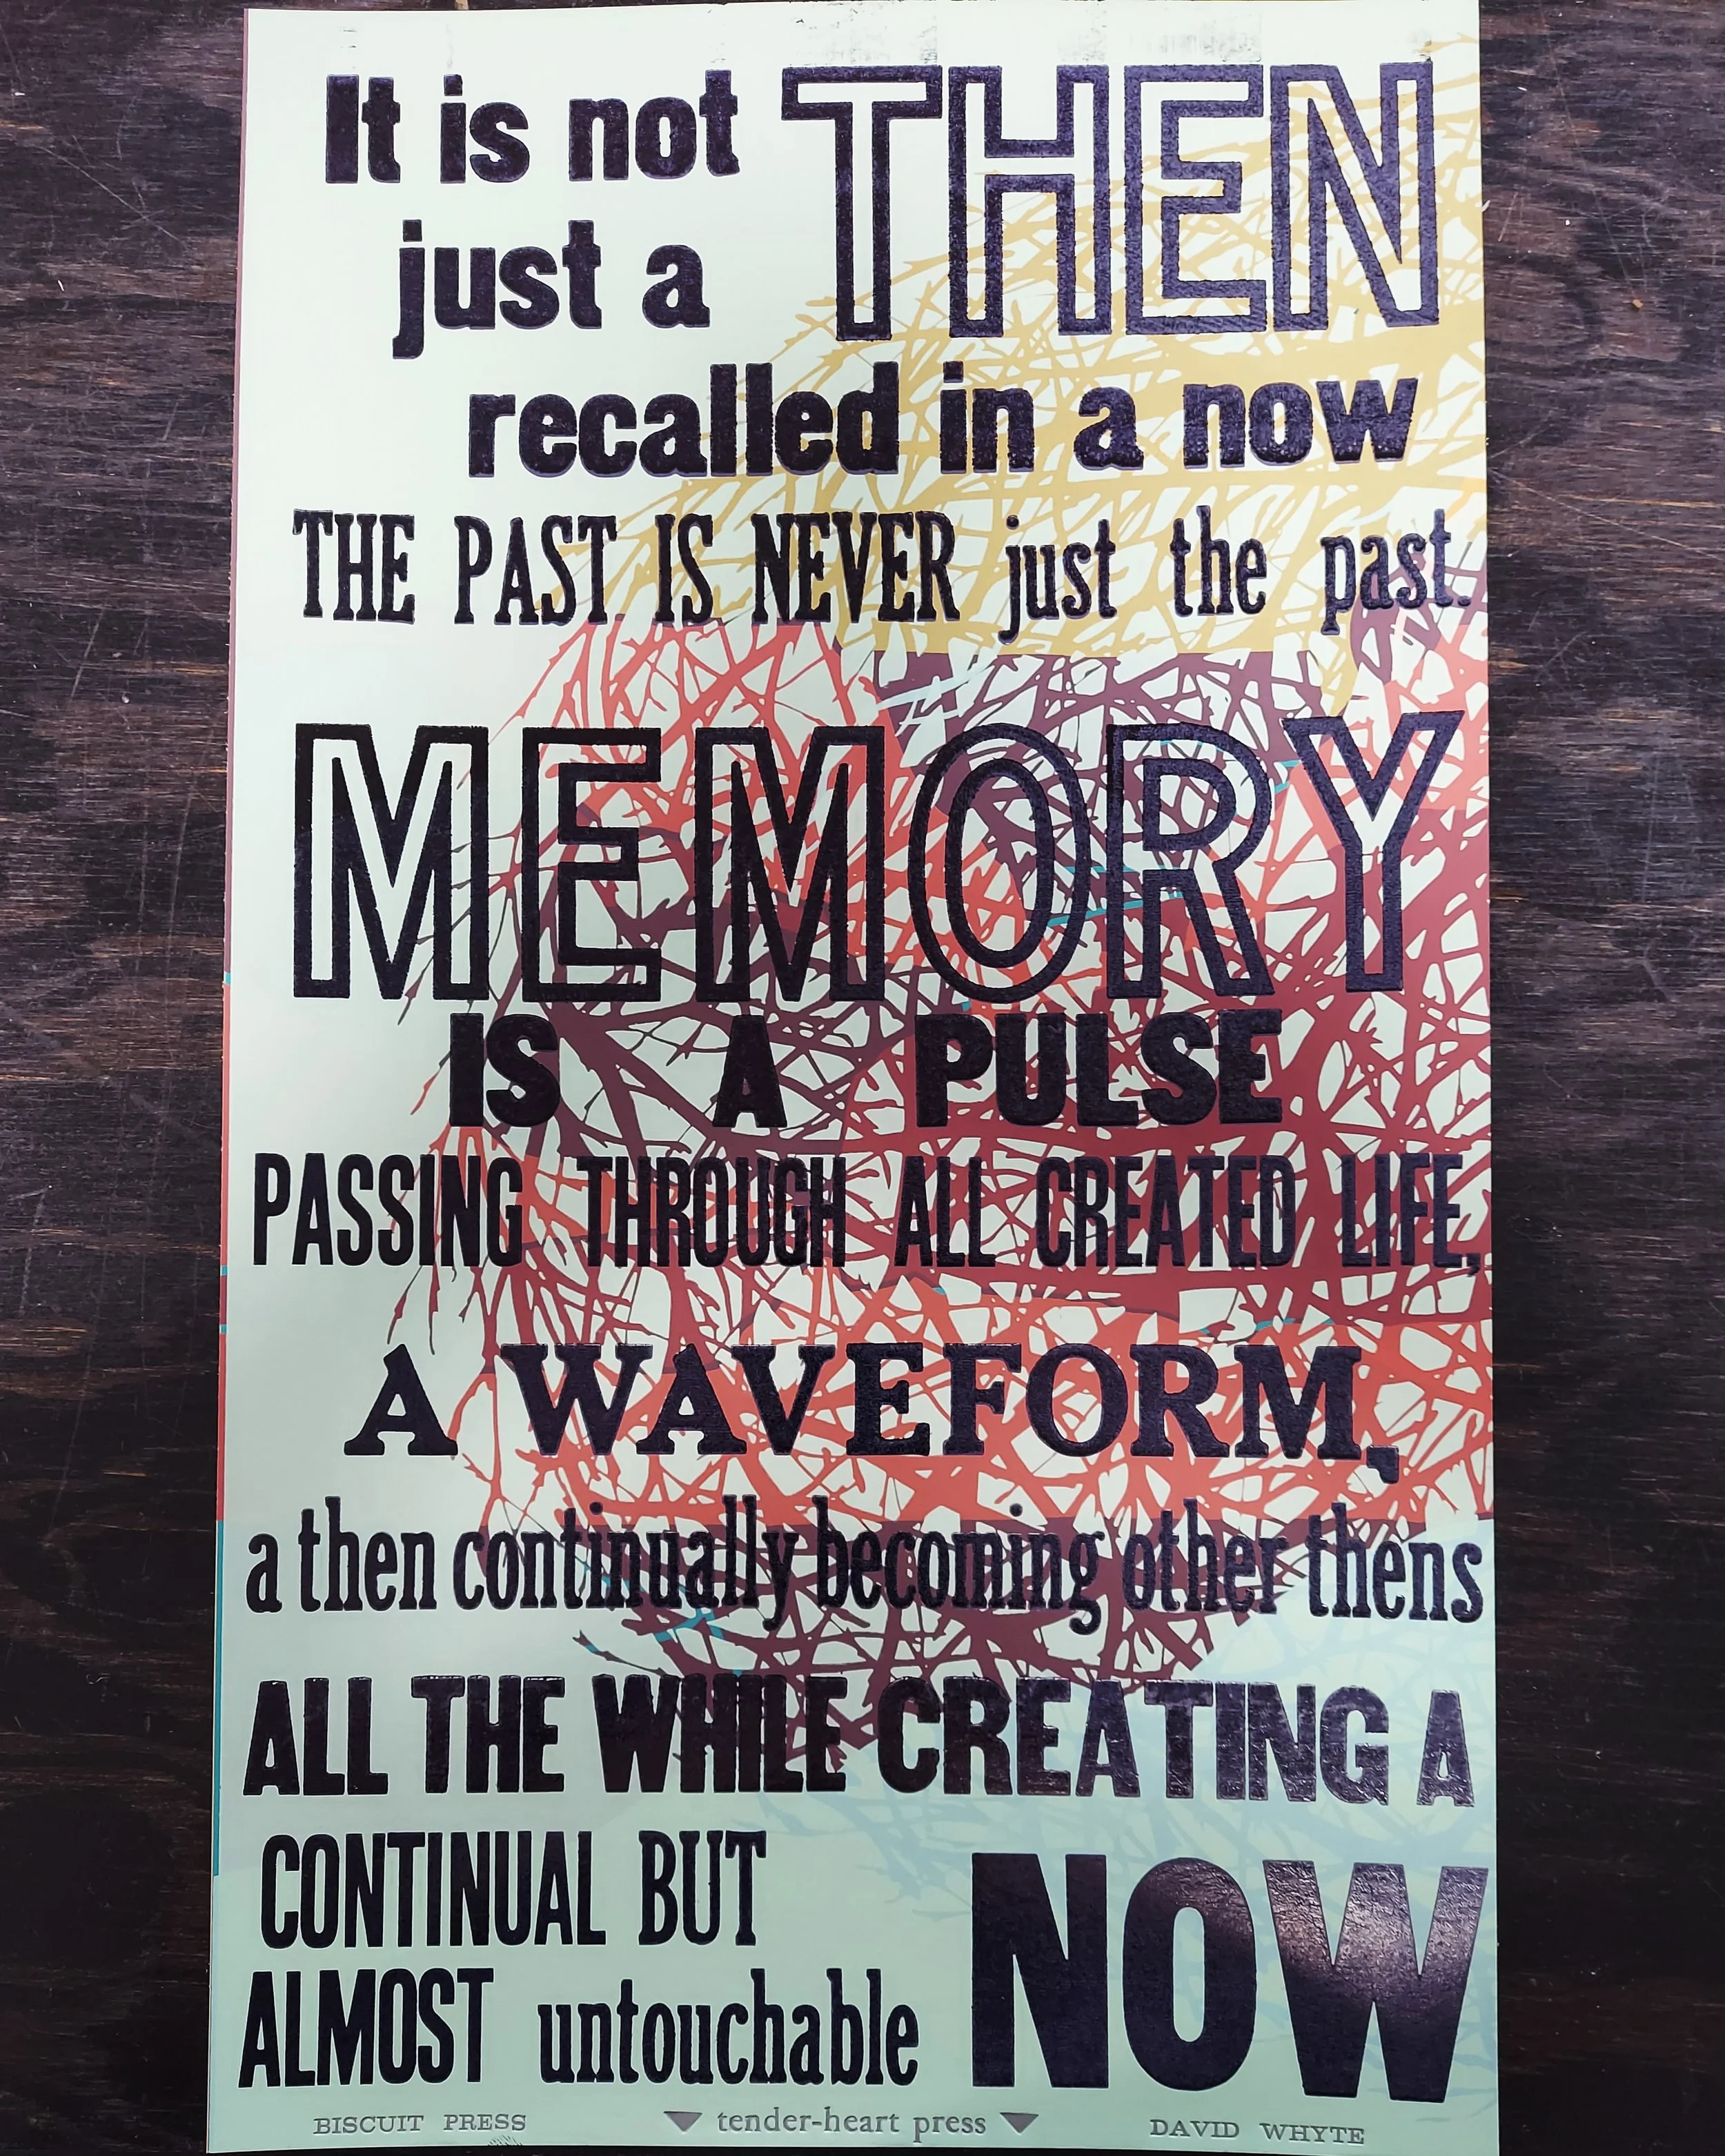 It is not THEN
just a
recalled in a now
THE PAST IS NEVER just the past.
MEMORY
IS A PULSE
PASSING THROUGH ALL CREATED LIFE,
A WAVEFORM,
a then continually becoming other thens
ALL THE WHILE CREATING A
CONTINUAL BUT
ALMOST untouchable NOW
BISCUIT PRESS tender-heart press DAVID WHYTE